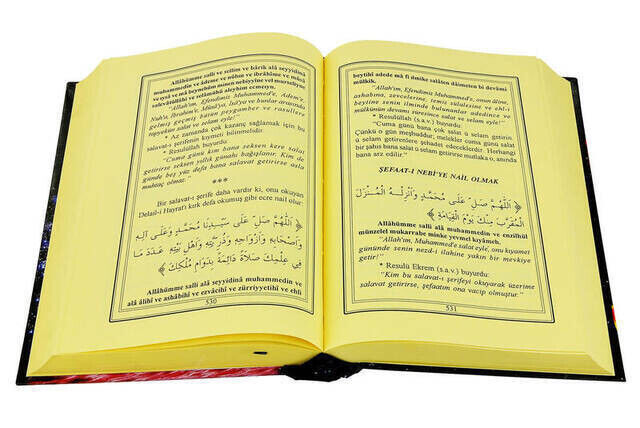 Allâhümme salli ve sellim ve bârik alâ seyyidinâ
muhammedin ve âdeme ve nûhın ve ibrâhîme ve mûsâ
ve iysâ ve mâ beynehüm minen nebiyyîne vel mürselîyne
salevâtüllâhi ve selâmühû aleyhim ecmeıyn.
"Allah'ım, Efendimiz Muhammed'e, Adem'e,
Nuh'a, İbrahim'e, Musa'ya, İsa'ya ve bunlar arasında
gelmiş geçmiş bütün peygamber ve rasullere
tarafından salat ve selam eyle!"
* Az zamanda çok kazanç sağlamak için bu
salavat-ı şerifenin kıymeti bilinmelidir.
* Resulullah (s.a.v.) buyurdu:
"Cuma günü bana seksen kere salat
getirirse seksen yıllık günahı bağışlanır. Kim de
günde beş yüz defa bana salavat getirirse asla
muhtaç olmaz."
***
Bir salavat-ı şerife daha vardır ki, onu okuyan
Delail-i Hayrat'ı kırk defa okumuş gibi ecre nail olur:
﴿ اَللّٰهُمَّ صَلِّ عَلٰى سَيِّدِنَا مُحَمَّدٍ وَعَلٰى آلِهِ
وَاَصْحَابِهِ وَاَزْوَاجِهِ وَذُرِّيَّتِهِ وَاَهْلِ بَيْتِهِ عَدَدَ مَا
فِي عِلْمِكَ صَلَاةً دَائِمَةً بِدَوَامِ مُلْكِكَ ﴾
Allâhümme salli alâ seyyidinâ muhammedin ve
alâ âlihî ve ashâbihî ve ezvâcihî ve zürriyyetihî ve ehli
530
beytihî adede mâ fî ılmike salâten dâimeten bi devâmi
mülkik.
"Allah'ım, Efendimiz Muhammed'e, onun âline,
ashabına, zevcelerine, temiz sülalesine ve ehl-i
beytine senin ilminde bulunanlar adedince ve
mülkünün devamı süresince salat ve selam eyle!"
* Resulüllah (s.a.v.) buyurdu:
"Cuma günü bana çok salat ü selam getirin.
Çünkü o gün meşhuddur, melekler hazır olur. Cuma
gününe melekler şehadet edeceklerdir. Herhangi
bir şahıs bana salat ü selam getirirse mutlaka o, anında
bana arz edilir."
ŞEFAAT-I NEBİ'YE NAİL OLMAK
﴿ اَللّٰهُمَّ صَلِّ عَلٰى مُحَمَّدٍ وَاَنْزِلْهُ الْمُنْزَلَ
الْمُقَرَّبَ مِنْكَ يَوْمَ الْقِيَامَةِ ﴾
Allâhümme salli alâ muhammedin ve enzilhül
münzelel mukarrabe minke yevmel kayâmeh.
"Allah'ım, Muhammed'e salat eyle, onu kıyamet
gününde senin nezd-i ilahine yakın bir mevkiye
getir!"
* Resulü Ekrem (s.a.v.) buyurdu:
"Kim bu salavat-ı şerifeyi okuyarak üzerime
salavat getirirse, şefaatım ona vacip olmuştur."
531